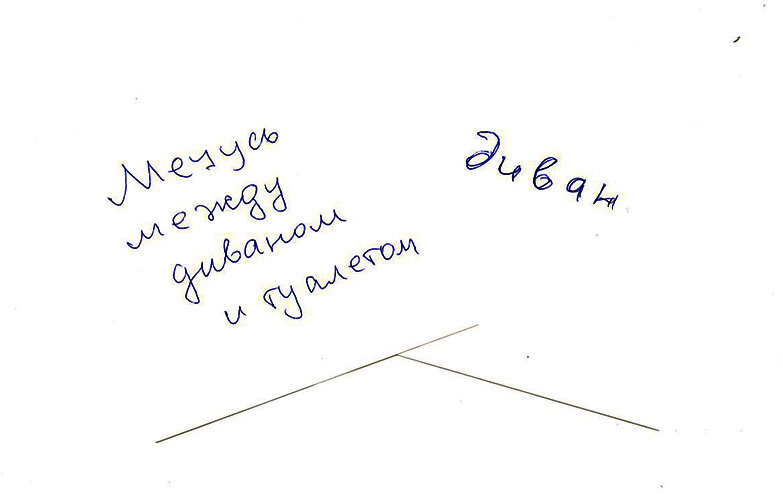 Мечусь
между
диваном
и туалетом
диван